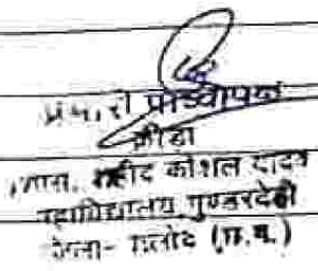 प्रभारी प्राध्यापक
क्रीडा
शास. शहीद कौशल यादव
महाविद्यालय गुण्डरदेही
जिला- बालोद (छ.ग.)